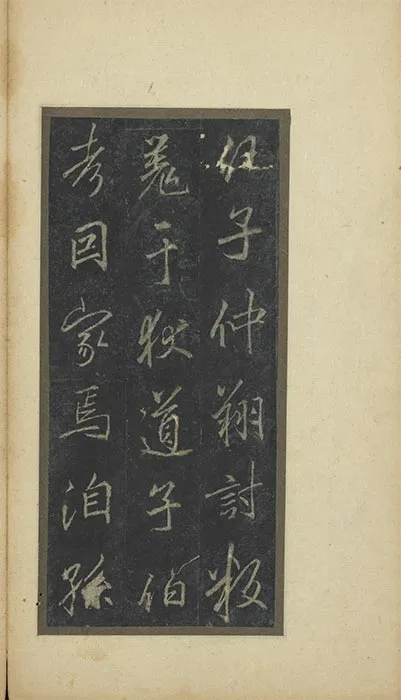 子仲翔討叛
羌于狄道子伯
考因家焉洎孫